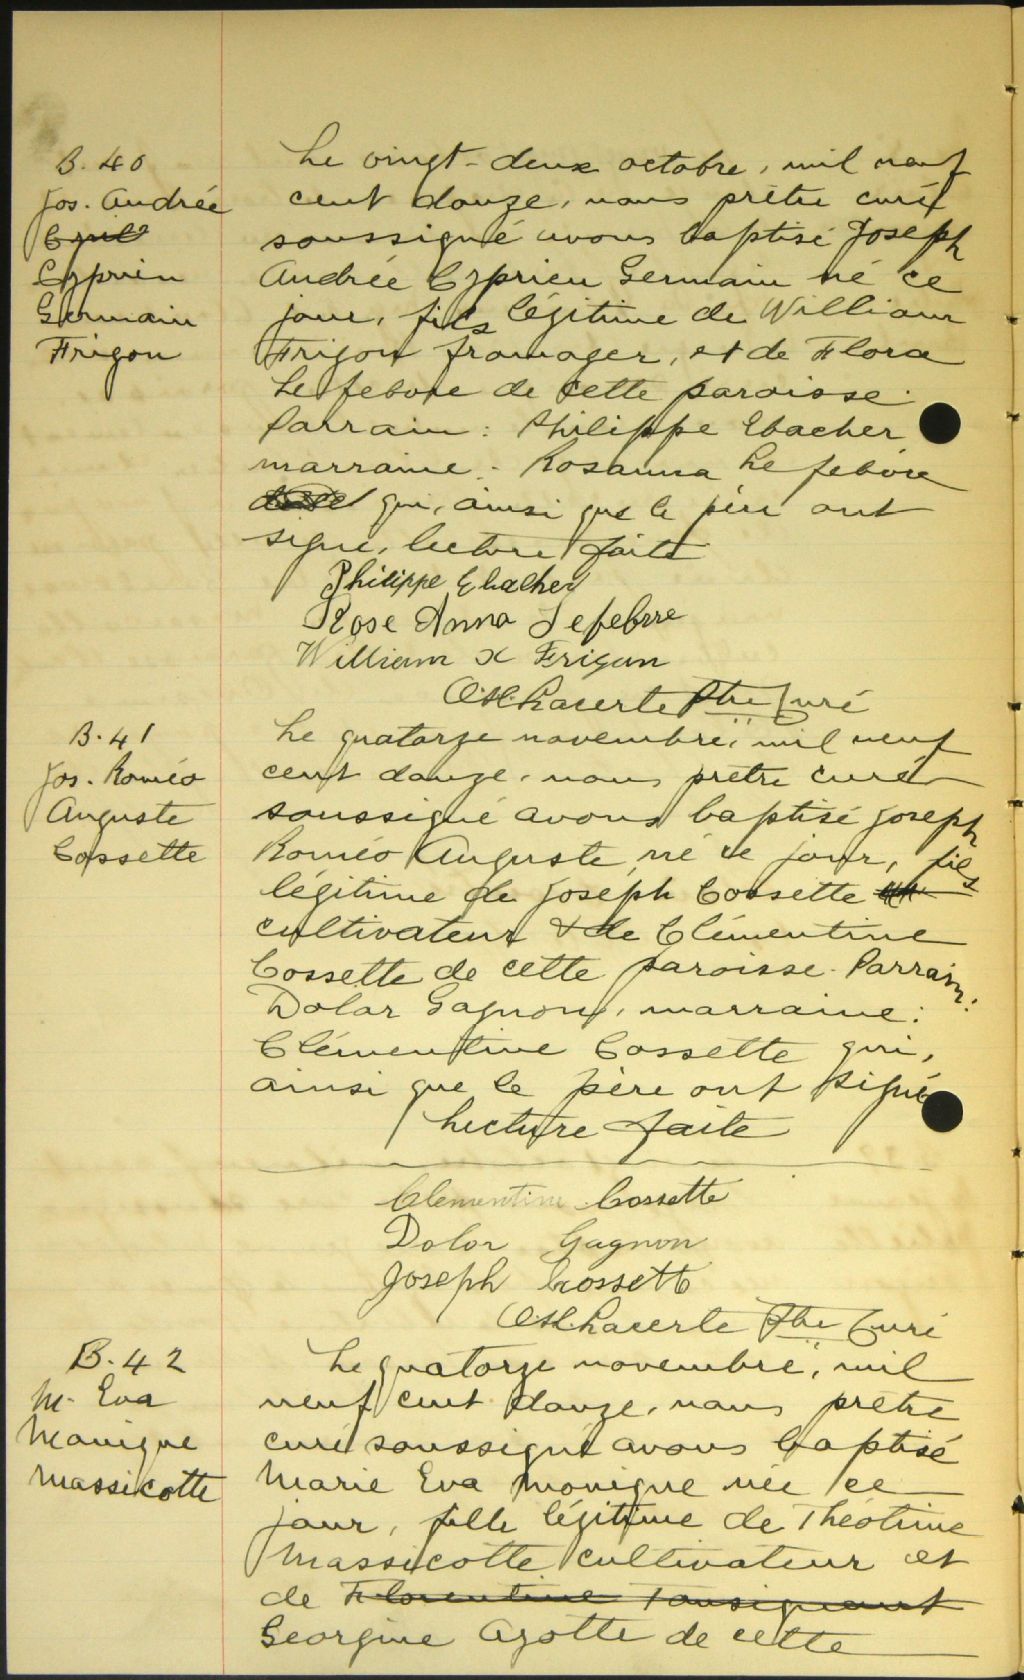 B. 40
Jos. Andrée
Cyprien
Germain
Frigon
Le vingt-deux octobre, mil neuf
cent douze, nous prêtre curé
soussigné avons baptisé Joseph
Andrée Cyprien Germain né ce
jour, fils légitime de William
Frigon fromager, et de Flora
Lefebvre de cette paroisse.
Parrain : Philippe Ebacher
marraine - Rosanna Lefebvre
qui, ainsi que le père ont
signé, lecture faite
Philippe Ebacher
Rose Anna Lefebvre
William X Frigon
O.H. Lacerte Ptre Curé
B. 41
Jos. Roméo
Auguste
Cossette
Le quatorze novembre, mil neuf
cent douze, nous prêtre curé
soussigné avons baptisé Joseph
Roméo Auguste, né ce jour, fils
légitime de Joseph Cossette
cultivateur & de Clémentine
Cossette de cette paroisse. Parrain:
Dolar Gagnon, marraine:
Clémentine Cossette qui,
ainsi que le père ont signé
Lecture faite
Clementine Cossette
Dolor Gagnon
Joseph Crossette
O.H. Lacerte Ptre Curé
B. 42
M. Eva
Monique
Massicotte
Le quatorze novembre, mil
neuf cent douze, nous prêtre
curé soussigné avons baptisé
Marie Eva Monique née ce
jour, fille légitime de Théotime
Massicotte cultivateur et
de Florentine Tousignant
Georgine Ayotte de cette